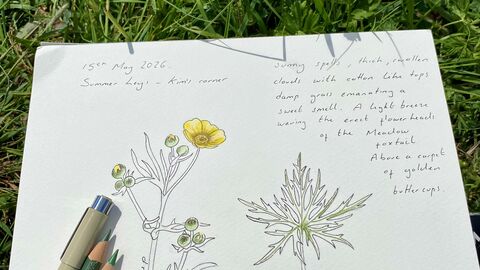 15th May 2026.
Summer Leys - Kim's corner
Sunny spells, thick, swollen
clouds with cotton like tops
damp grass emanating a
sweet smell. A light breeze
waving the erect flowerheads
of the Meadow
foxtail
Above a carpet
of golden
buttercups.